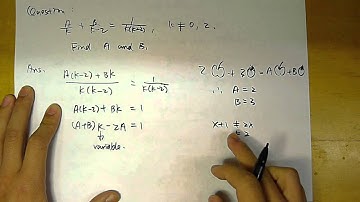 Question:
A/K + B/K-2 = 1/K(K-2), K ≠ 0, 2.
Find A and B.
Ans:
A(K-2) + BK / K(K-2) = 1/K(K-2)
A(K-2) + BK = 1
(A+B)K - 2A = 1
variable.
∴ A = 2
B = 3
x+1 ≠ 2x